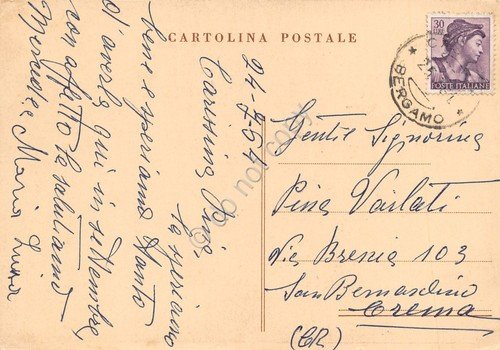 CARTOLINA POSTALE
30
POSTE ITALIANE
BERGAMO
24-7-64
Carissima Pina,
la speriamo
bene e speriamo tanto
d'averla qui in settembre,
con affetto la salutiamo
Maria Luisa
Gentil Signorina
Pina Vailati
Via Brenia 103
San Bernardino
Crema
(CR)
© do not copy